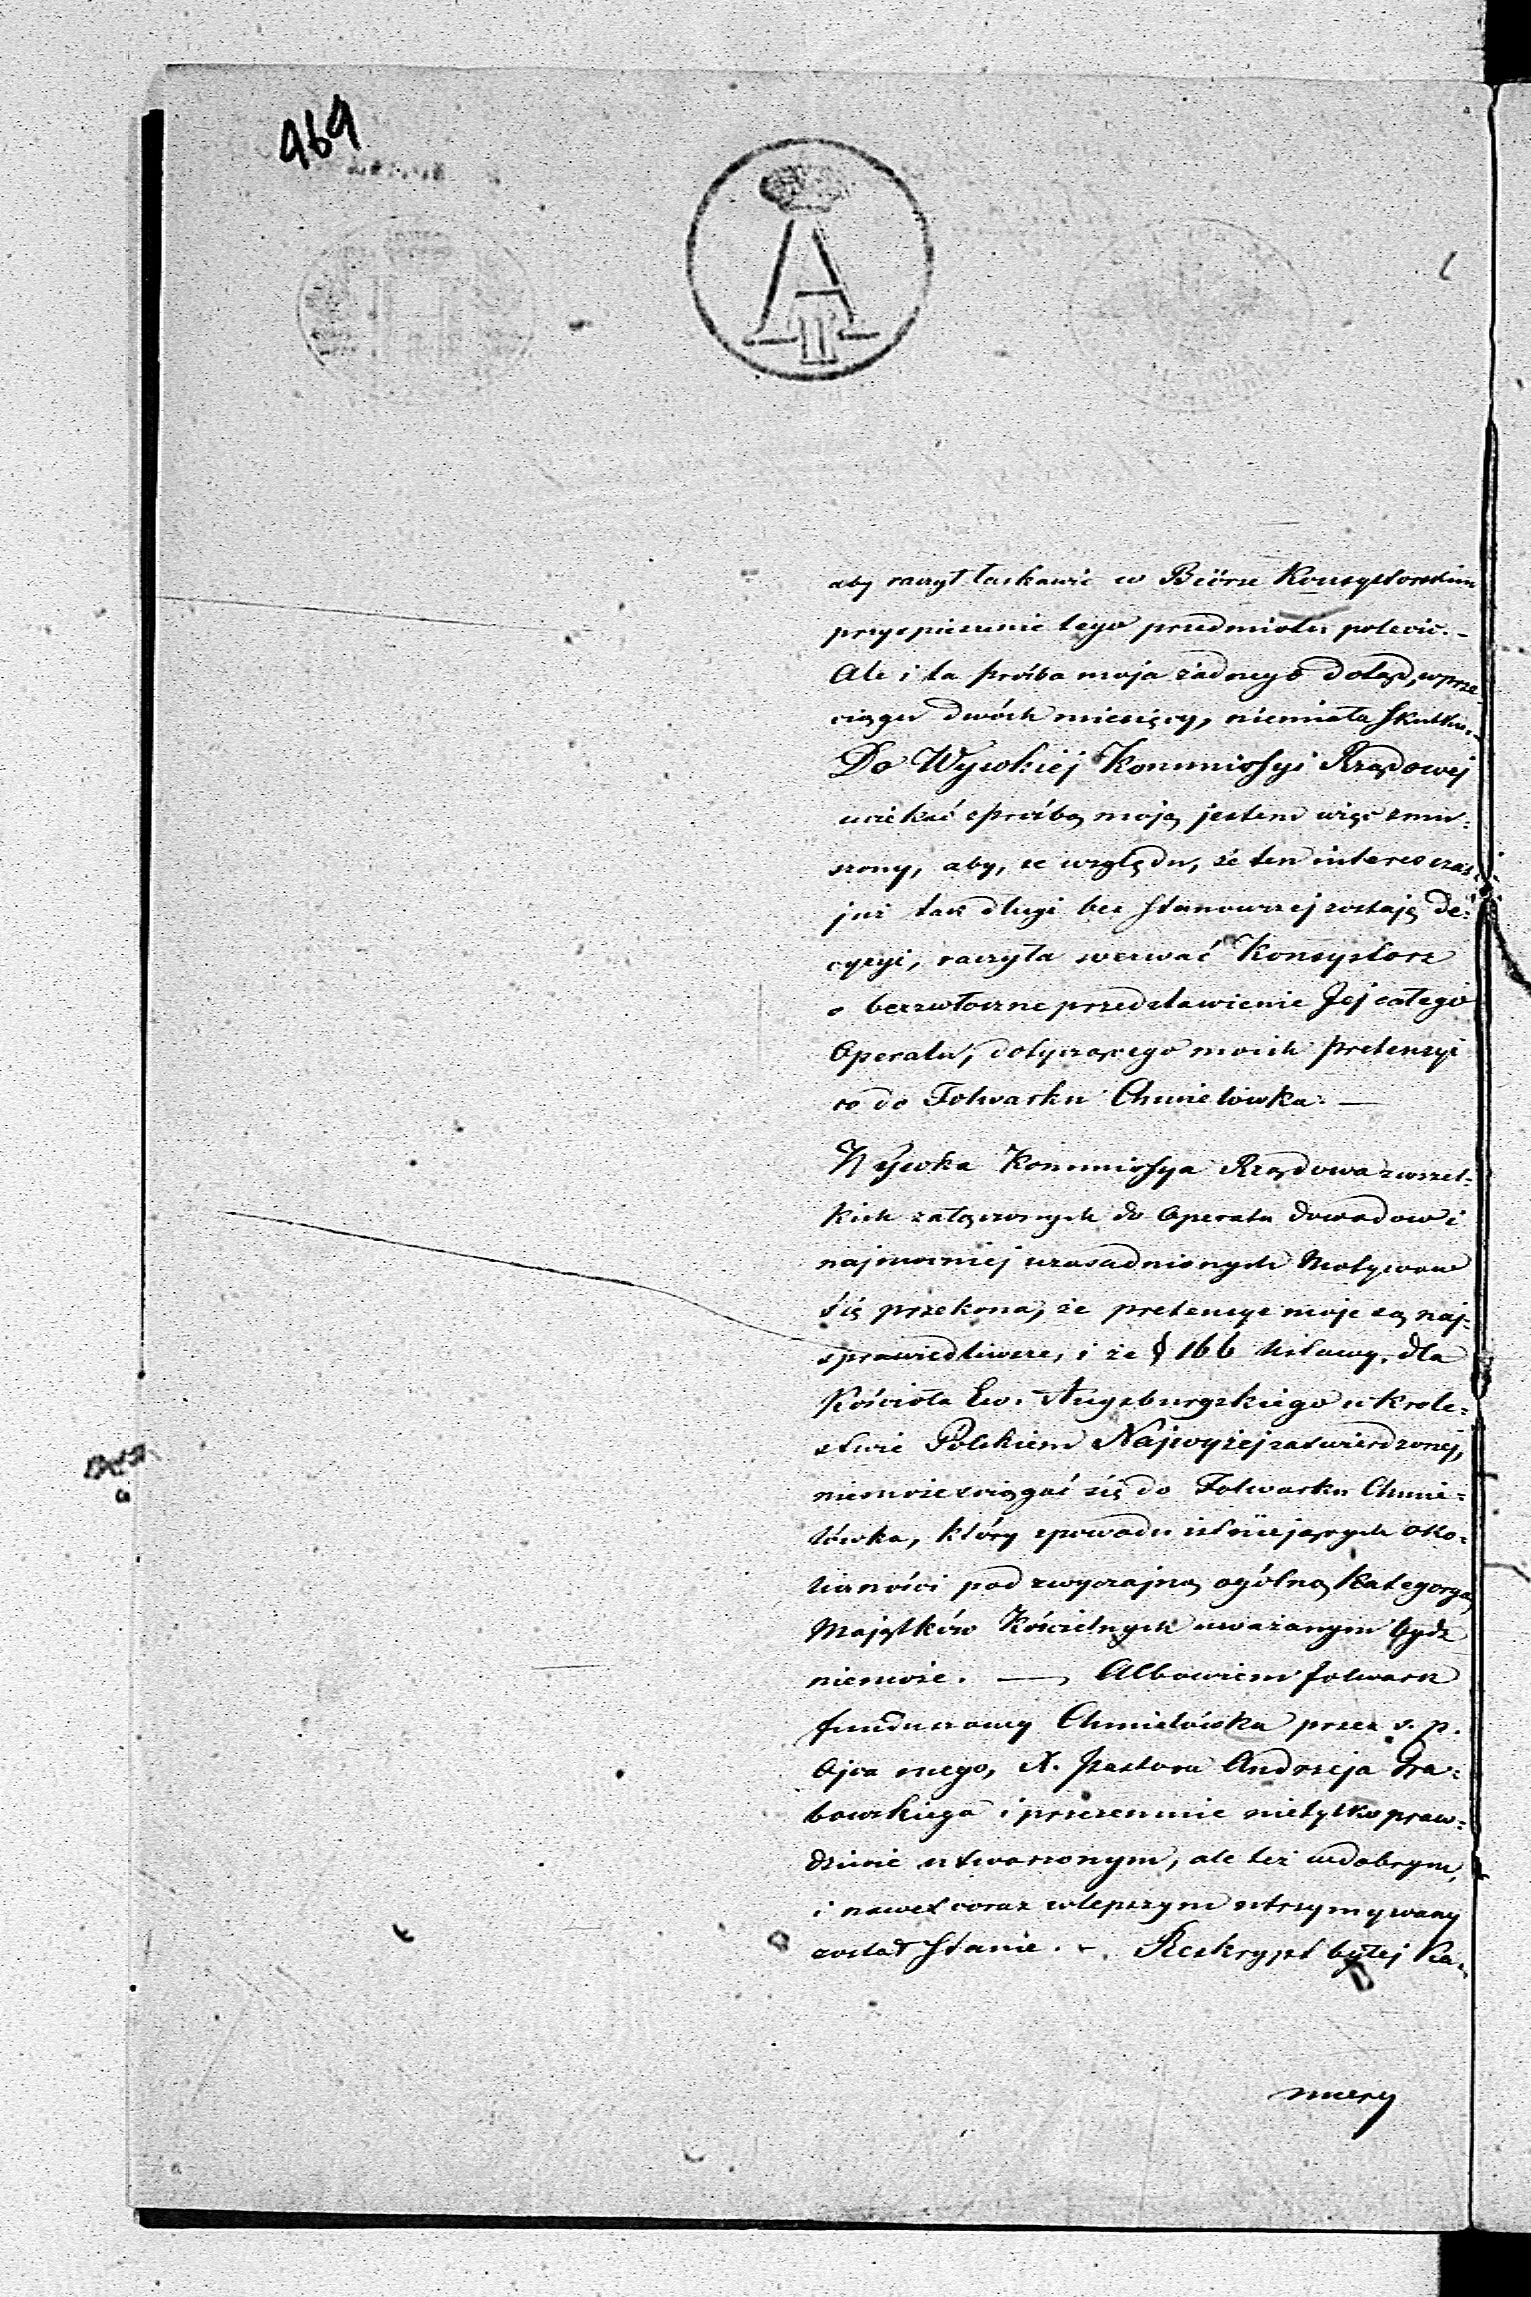 969
A
II
aby raczył łaskawie w Biórze Konsystorskim
przyspieszenie tego przedmiotu polecić. –
Ale i ta prośba moja żadnego dotąd, w prze-
ciągu dwóch miesięcy, niemiała skutku. –
Do Wysokiéj Kommissyi Rządowej
uciekać sprośbą moją jestem więc zmu-
szony, aby, ze względu, że ten interes czas
już tak długi bez stanowczej zostaję de-
cyzyi, raczyła wezwać Konsystorz
o bezzwłoczne przedstawienie Jej całego
Operatu, dotyczącego moich pretensyi
co do Folwarku Chmielówka. —
Wysoka Kommissya Rządowa z wszel-
kich załączonych do Operatu dowodow i
najmocniej uzasadnionych Motywow
się przekona, że pretensye moje są naj-
sprawiedliwsze, i że § 166 Ustawy, dla
Kościoła Ew. Augsburgskiego w Krole-
stwie Polskiem Najwyżej zatwierdzonej,
niemoże ściągać się do Folwarku Chmie-
lówka, który zpowodu istniejących oko-
liczności pod zwyczajną ogólną Kategoryą
Majątków Kościelnych uważanym bydź
niemoże. — Albowiem folwark
funduszowy Chmielówka przez ś. p.
Ojca mego, X. Pastora Andrzeja Gra-
bowskiego i przezemnie nietylko praw-
dziwie utworzonym, ale też w dobrym,
i nawet coraz wlepszym utrzymywany
został stanie. –. Reskrypt byłej Ka-
mery